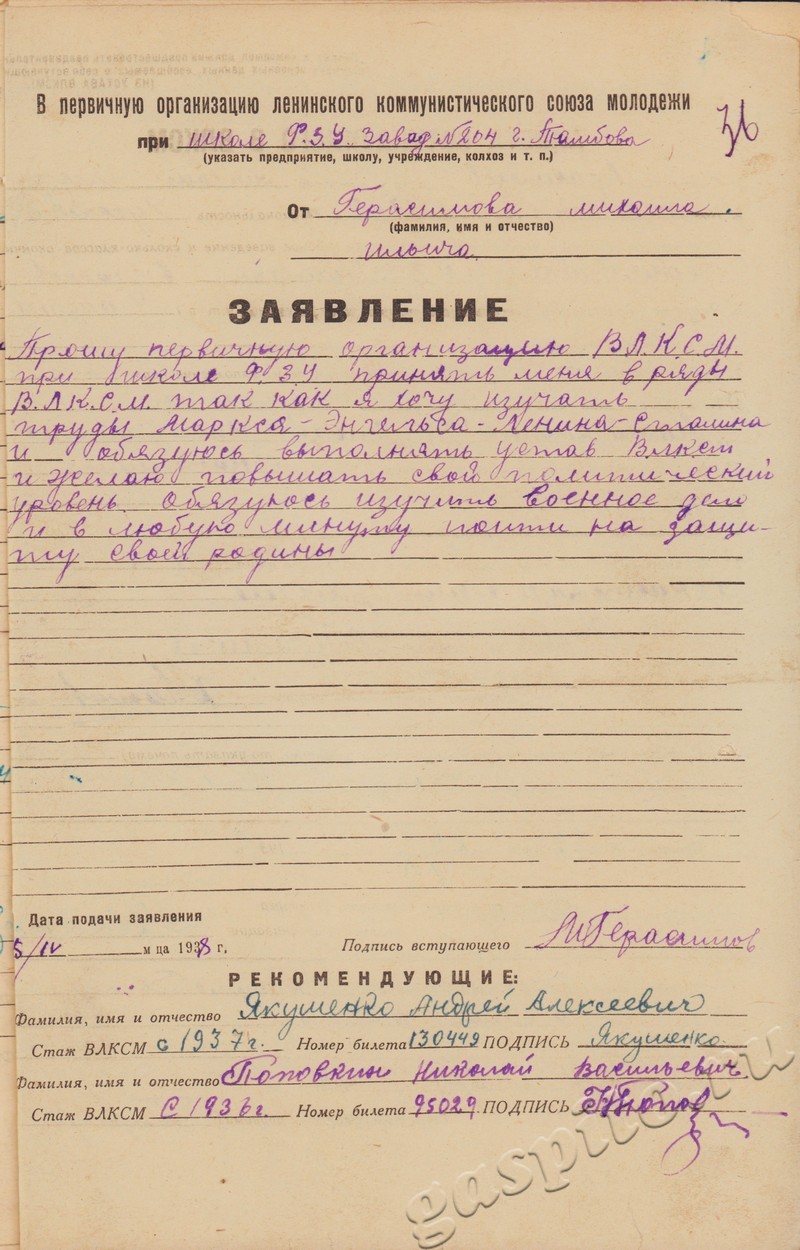 В первичную организацию ленинского коммунистического союза молодежи
36
при школе Ф.З.У. Завод №204 г. Тамбова
(указать предприятие, школу, учреждение, колхоз и т. п.)
От Герасимова михаила
(фамилия, имя и отчество)
ильича
ЗАЯВЛЕНИЕ
Прошу первичную организацию ВЛ.К.С.М.
при школе Ф.З.У принять меня в ряды
В.Л.К.С.М. так как я хочу изучать
труды Маркса-Энгельса-Ленина-Сталина
и обязуюсь выполнять устав Влксм
и желаю повышать свой политический
уровень. Обязуюсь изучить военное дело
и в любую минуту пойти на защи-
ту своей родины
Дата подачи заявления
5/IV м ца 1938 г.
Подпись вступающего МГерасимов
РЕКОМЕНДУЮЩИЕ:
Фамилия, имя и отчество Якушенко Андрей Алексеевич
Стаж ВЛКСМ с 1937г. Номер билета 130449 ПОДПИСЬ Якушенко
Фамилия, имя и отчество Поповкин Николай Васильевич
Стаж ВЛКСМ С 1936г. Номер билета 95029 ПОДПИСЬ НПопов
gaspito.ru